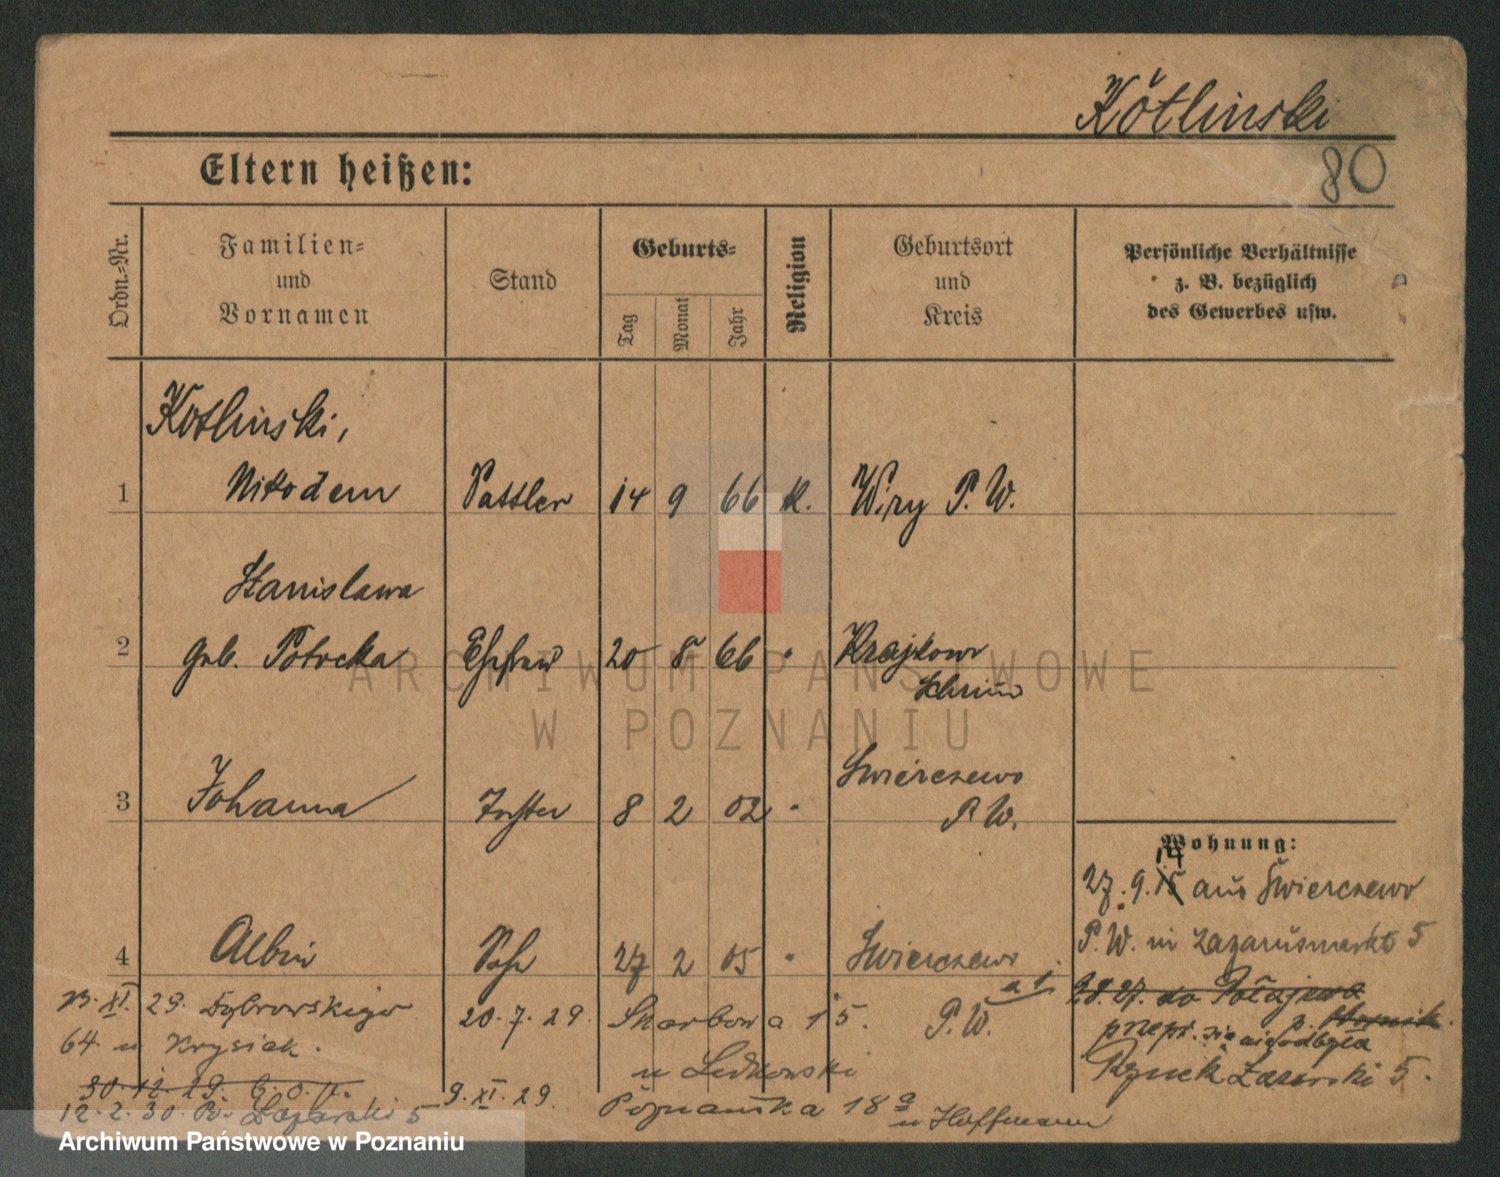 Kotlinski
80
Eltern heißen:
Ordn.-Nr.
Familien-
und
Vornamen
Stand
Geburts-
Tag
Monat
Jahr
Religion
Geburtsort
und
Kreis
Persönliche Verhältnisse
z. B. bezüglich
des Gewerbes usw.
Kotlinski,
1 Nikodem Sattler 14 9 66 k. Wiry P. W.
Stanislawa
2 geb. Potocka Ehefrau 20 8 66 " Krajkowo
Schrimm
3 Johanna Tochter 8 2 02 " Swierczewo
P. W.
4 Albin Sohn 27 2 05 " Swierczewo
P. W.
Wohnung:
14
27. 9. 15 aus Swierczewo
P. W. in Lazarusmarkt 5
28. 27. do
przepr. się nie odbyła
Rynek Łazarski 5.
XI. 29. Dąbrowskiego
64. u Krysiak.
30. 12. 29.
12. 2. 30. R. Łazarski 5
20. 7. 29. Skarbowa 15.
u Ledkowski
9. XI. 29. Poznańska 18a
u Hoffmann
ARCHIWUM PAŃSTWOWE
W POZNANIU
Archiwum Państwowe w Poznaniu